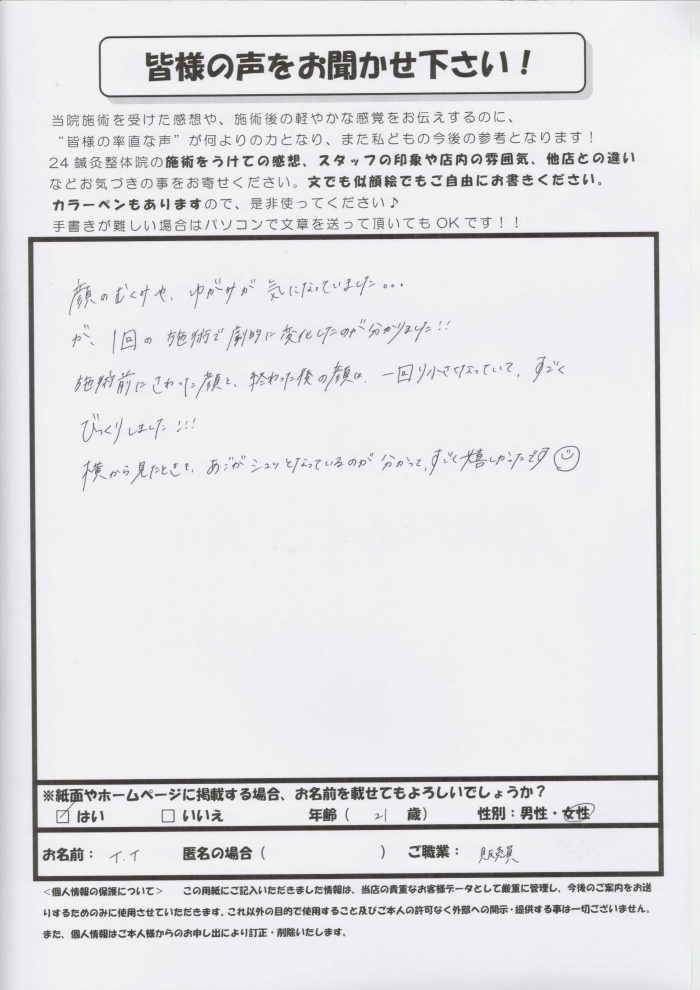 皆様の声をお聞かせ下さい！
当院施術を受けた感想や、施術後の軽やかな感覚をお伝えするのに、
“皆様の率直な声”が何よりの力となり、また私どもの今後の参考となります！
24鍼灸整体院の施術をうけての感想、スタッフの印象や店内の雰囲気、他店との違い
などお気づきの事をお寄せください。文でも似顔絵でもご自由にお書きください。
カラーペンもありますので、是非使ってください♪
手書きが難しい場合はパソコンで文章を送って頂いてもOKです！！
顔のむくみや、ゆがみが気になっていました...
が、1回の施術で劇的に変化したのが分かりました!!
施術前にさわった顔と、終わった後の顔は、一回り小さくなっていて、すごく
びっくりしました!!!
横から見たときも、あごがシュッとなっているのが分かって、すごく嬉しかったです
※紙面やホームページに掲載する場合、お名前を載せてもよろしいでしょうか？
☑ はい □ いいえ 年齢（ 21 歳） 性別：男性・女性
お名前： イ.イ 匿名の場合（ ） ご職業： 販売員
＜個人情報の保護について＞ この用紙にご記入いただきました情報は、当店の貴重なお客様データとして厳重に管理し、今後のご案内をお送
りするためのみに使用させていただきます。これ以外の目的で使用すること及びご本人の許可なく外部への開示・提供する事は一切ございません。
また、個人情報はご本人様からのお申し出により訂正・削除いたします。